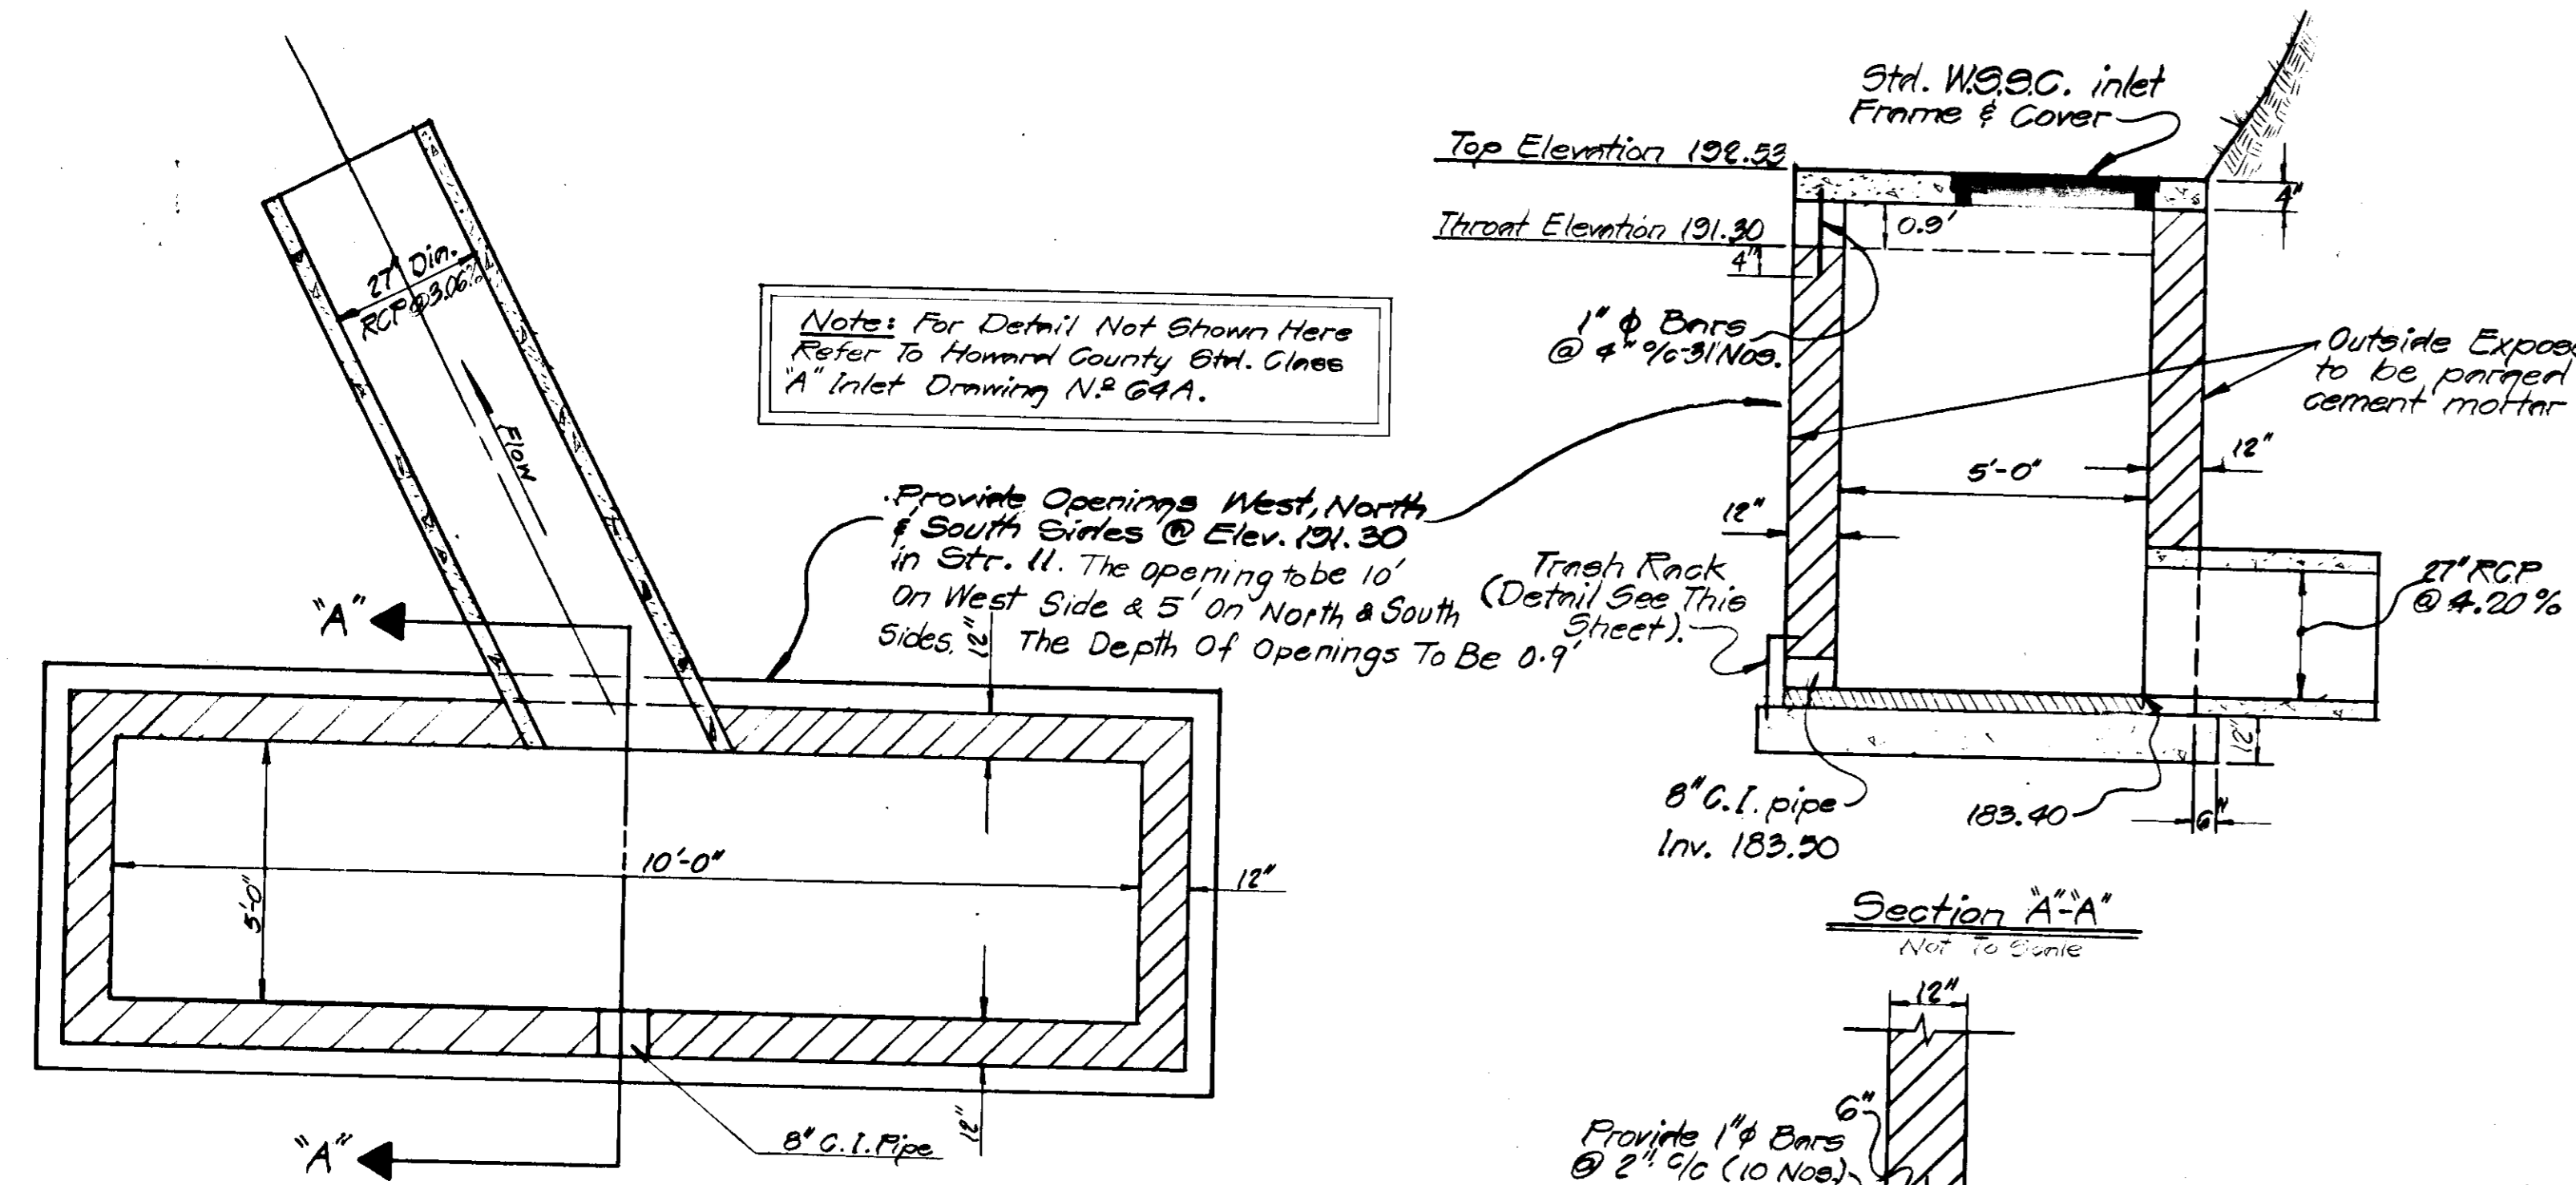 27" Dia.
RCP @ 3.06%
FLOW
Note: For Detail Not Shown Here
Refer To Howard County Std. Class
"A" Inlet Drawing Nº 64A.
Provide Openings West, North
& South Sides @ Elev. 191.30
in Str. 11. The opening to be 10'
On West Side & 5' On North & South
Sides.
The Depth Of Openings To Be 0.9'
12"
"A"
10'-0"
5'-0"
12"
12"
8" C.I. Pipe
"A"
Std. W.S.S.C. inlet
Frame & Cover
Top Elevation 192.53
4"
Throat Elevation 191.30
0.9'
4"
1" ϕ Bars
@ 4" o/c-31 Nos.
Outside Expose
to be parged
cement mortar
12"
5'-0"
12"
Trash Rack
(Detail See This
Sheet).
27" RCP
@ 4.20%
12"
8" C.I. pipe
Inv. 183.50
183.40
6"
Section "A"-"A"
Not To Scale
12"
6"
Provide 1" ϕ Bars
@ 2" c/c (10 Nos.)